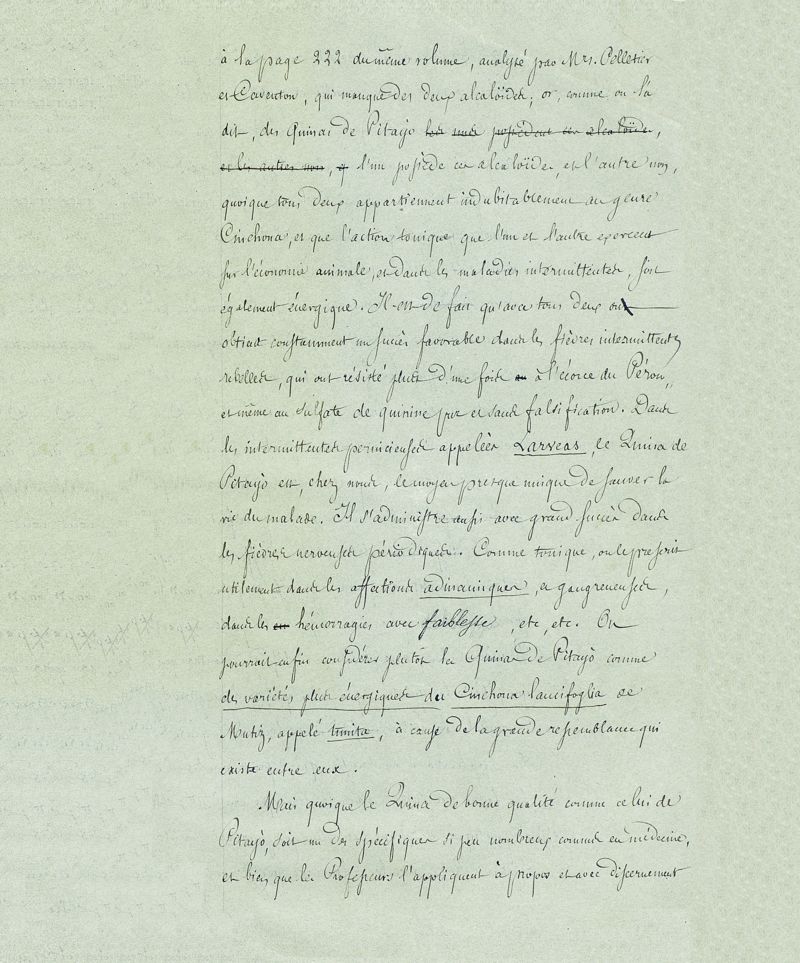 à la page 222 du même volume, analysé par Mrs. Pelletier
et Caventou, qui manque des deux alcaloïdes; or, comme on l'a
dit, des Quinas de Pitayò les uns possèdent ces alcaloïdes,
et les autres non, l'un possède ces alcaloïdes, et l'autre non,
quoique tous deux appartiennent indubitablement au genre
Cinchona, et que l'action tonique que l'un et l'autre exercent
sur l'économie animale, et dans les maladies intermittentes, soit
également énergique. Il est de fait qu'avec tous deux on
obtient constamment un succès favorable dans les fièvres intermittentes
rebelles, qui ont résisté plus d'une fois à l'écorce du Pérou,
et même au sulfate de quinine pur et sans falsification. Dans
les intermittentes pernicieuses appelées Larveas, le Quina de
Pitayò est, chez nous, le moyen presque unique de sauver la
vie du malade. Il s'administre aussi avec grand succès dans
les fièvres nerveuses périodiques. Comme tonique, on le prescrit
utilement dans les affections adinamiques, et gangreneuses,
dans les hémorragies avec faiblesse, etc, etc. On
pourrait enfin considérer plutôt les Quinas de Pitayò comme
des variétés plus énergiques du Cinchona lancifoglia de
Mutiz, appelé tunita, à cause de la grande ressemblance qui
existe entre eux.
Mais quoique le Quina de bonne qualité comme celui de
Pitayò, soit un des spécifiques si peu nombreux connus en médecine,
et bien que les Professeurs l'appliquent à propos et avec discernement